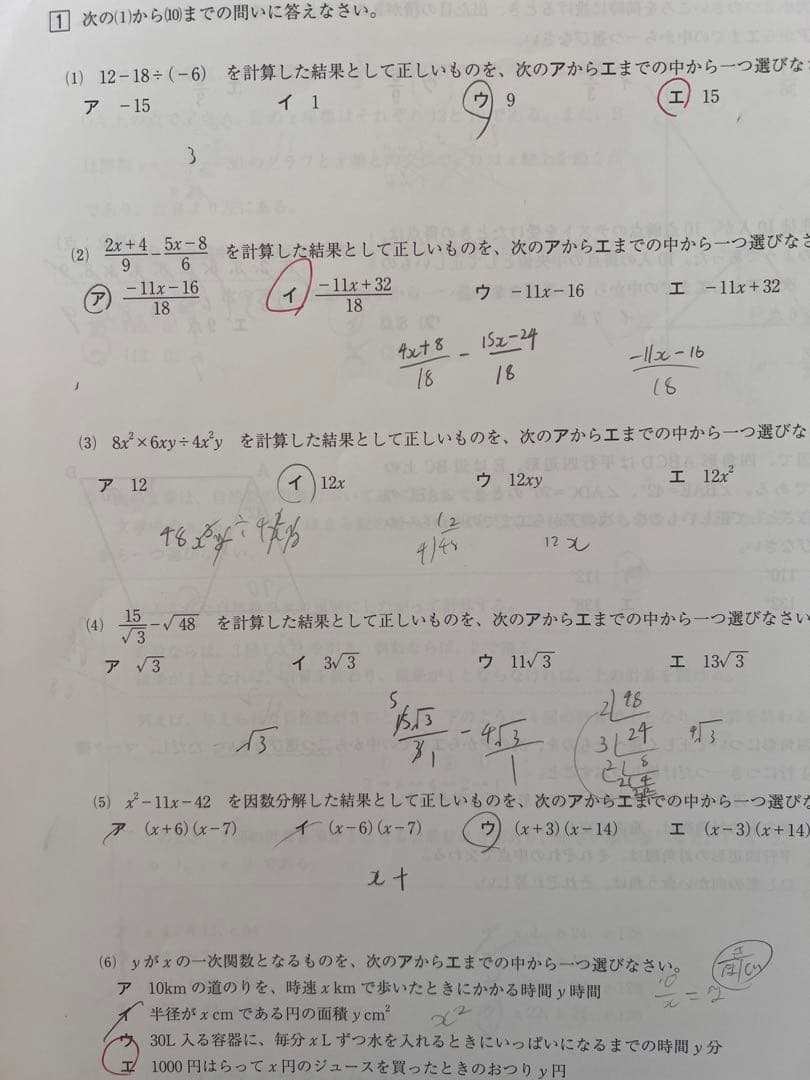 1 次の(1)から(10)までの問いに答えなさい。
(1) 12－18÷(－6) を計算した結果として正しいものを、次のアからエまでの中から一つ選びな
ア －15 イ 1 ウ 9 エ 15
3
(2) (2x+4)/9－(5x－8)/6 を計算した結果として正しいものを、次のアからエまでの中から一つ選びなさ
ア (－11x－16)/18 イ (－11x+32)/18 ウ －11x－16 エ －11x+32
(4x+8)/18 － (15x－24)/18 (－11x－16)/18
(3) 8x²×6xy÷4x²y を計算した結果として正しいものを、次のアからエまでの中から一つ選びな
ア 12 イ 12x ウ 12xy エ 12x²
12
4)48 12x
(4) 15/√3－√48 を計算した結果として正しいものを、次のアからエまでの中から一つ選びなさい
ア √3 イ 3√3 ウ 11√3 エ 13√3
√3 5 15√3/3 1 － 4√3/1 2)48 4√3
3)24
2)8
2)4
(5) x²－11x－42 を因数分解した結果として正しいものを、次のアからエまでの中から一つ選びな
ア (x+6)(x－7) イ (x－6)(x－7) ウ (x+3)(x－14) エ (x－3)(x+14)
x+
(6) yがxの一次関数となるものを、次のアからエまでの中から一つ選びなさい。
ア 10kmの道のりを、時速xkmで歩いたときにかかる時間y時間 10/x = y
イ 半径がxcmである円の面積ycm² x²
ウ 30L入る容器に、毎分xLずつ水を入れるときにいっぱいになるまでの時間y分
エ 1000円はらってx円のジュースを買ったときのおつりy円